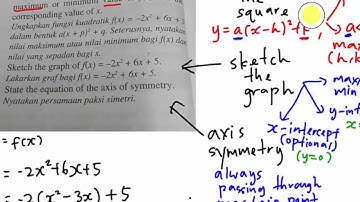 maximum or minimum value
corresponding value of x.
Ungkapkan fungsi kuadratik f(x) = -2x² + 6x + 5
dalam bentuk a(x + p)² + q. Seterusnya, nyatakan
nilai maksimum atau nilai minimum bagi f(x) dan
nilai yang sepadan bagi x.
Sketch the graph of f(x) = -2x² + 6x + 5.
Lakarkan graf bagi f(x) = -2x² + 6x + 5.
State the equation of the axis of symmetry.
Nyatakan persamaan paksi simetri.
= f(x)
= -2x²+6x+5
= -2(x²-3x) + 5
the
square
y = a(x-h)²+
(h,k)
sketch
the
graph
max/
min
y-int
x-intercept
(optional)
(y=0)
axis
symmetry
always
passing through
point